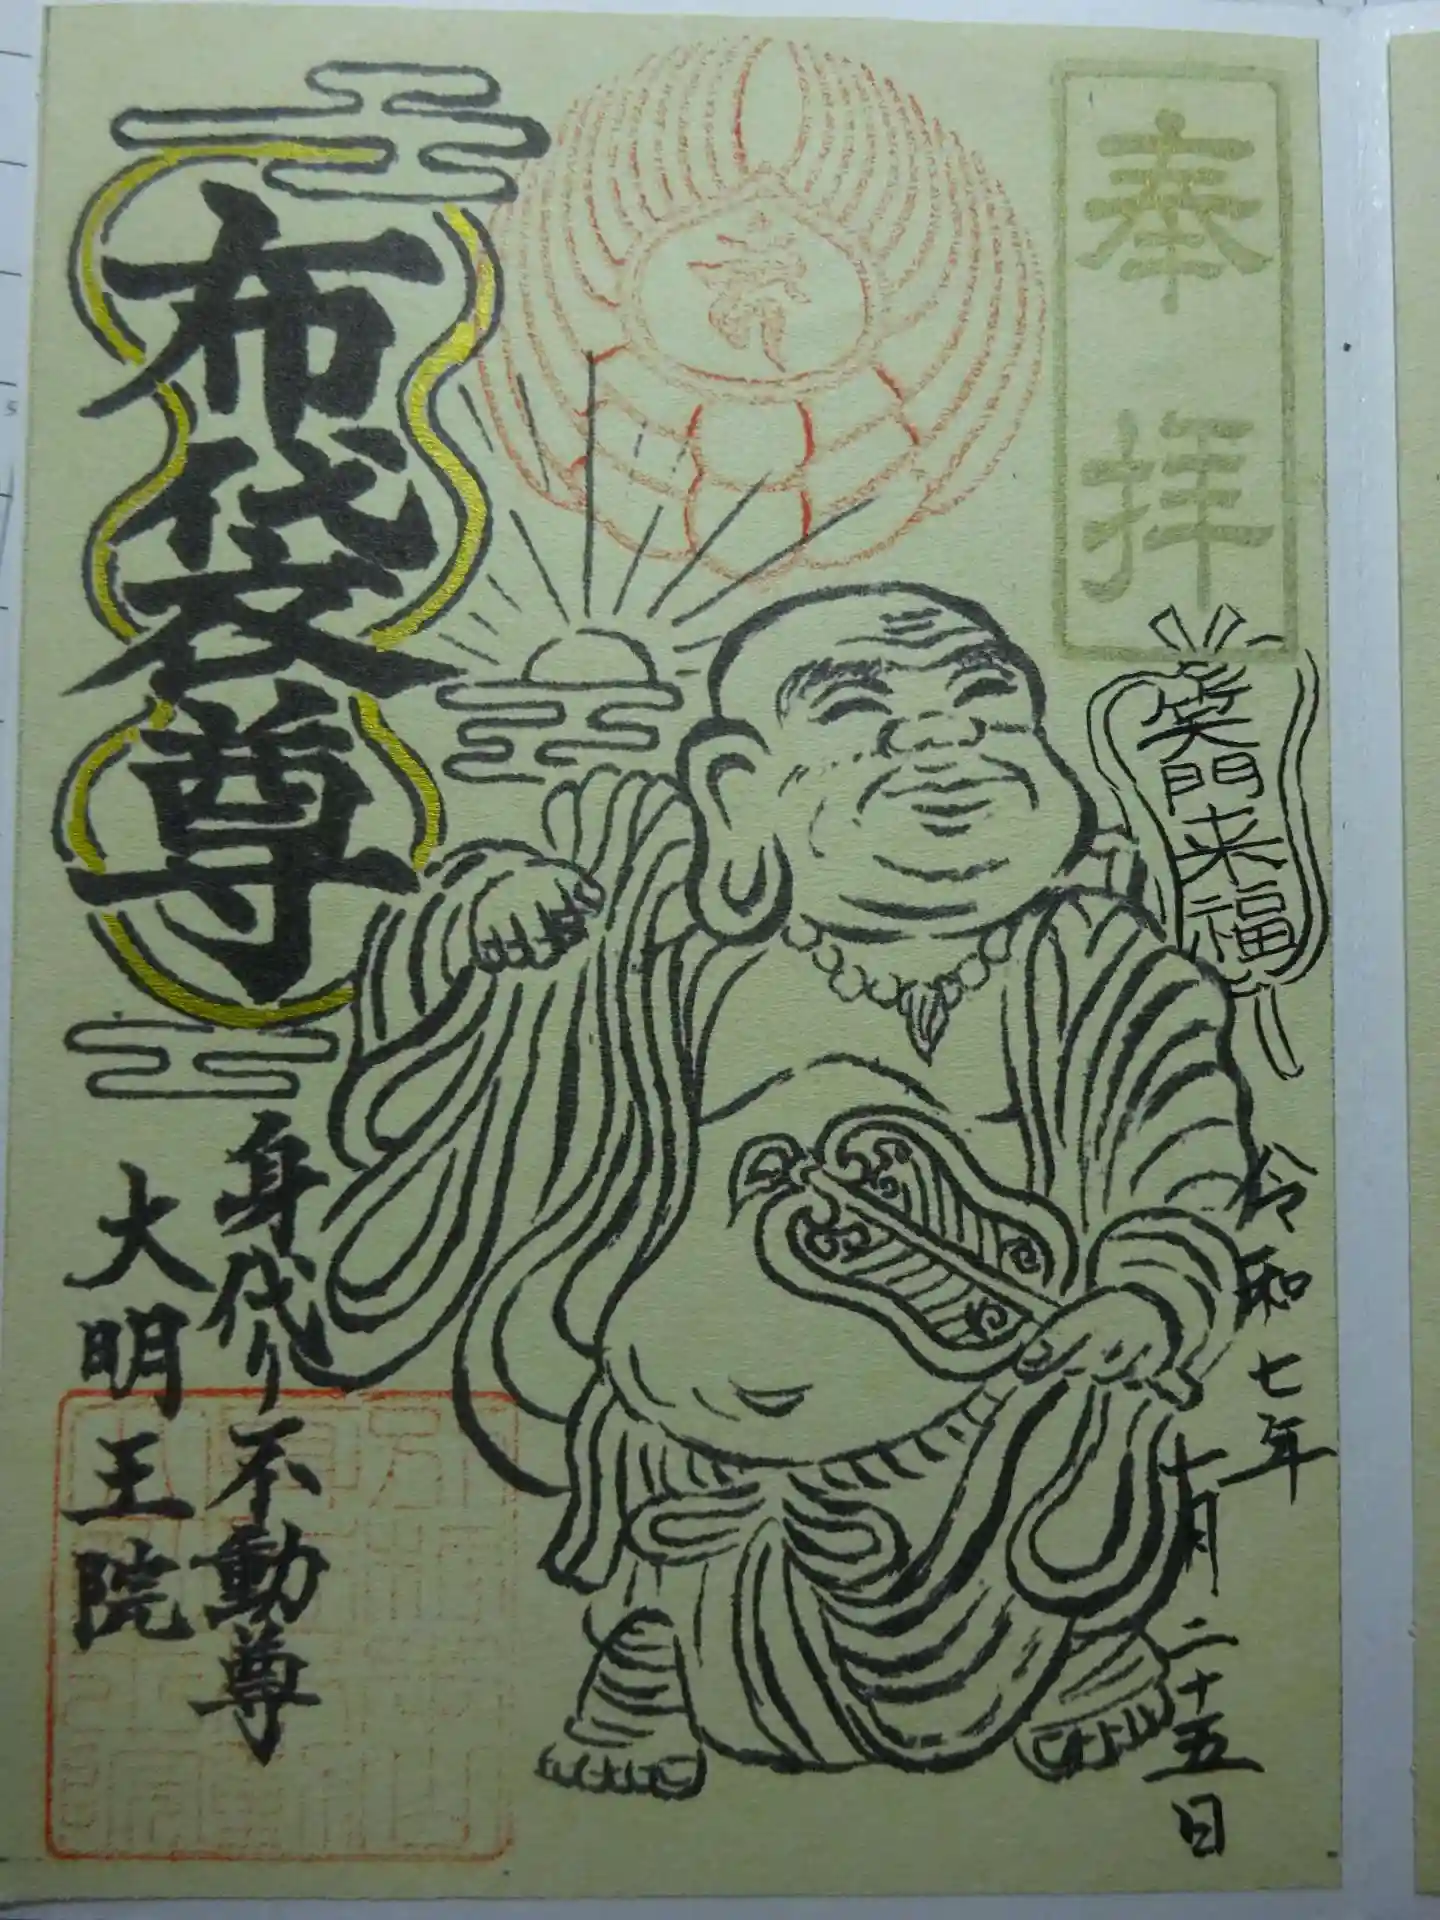 奉拝
笑門来福
令和七年
十月二十五日
布袋尊
身代り不動尊
大明王院